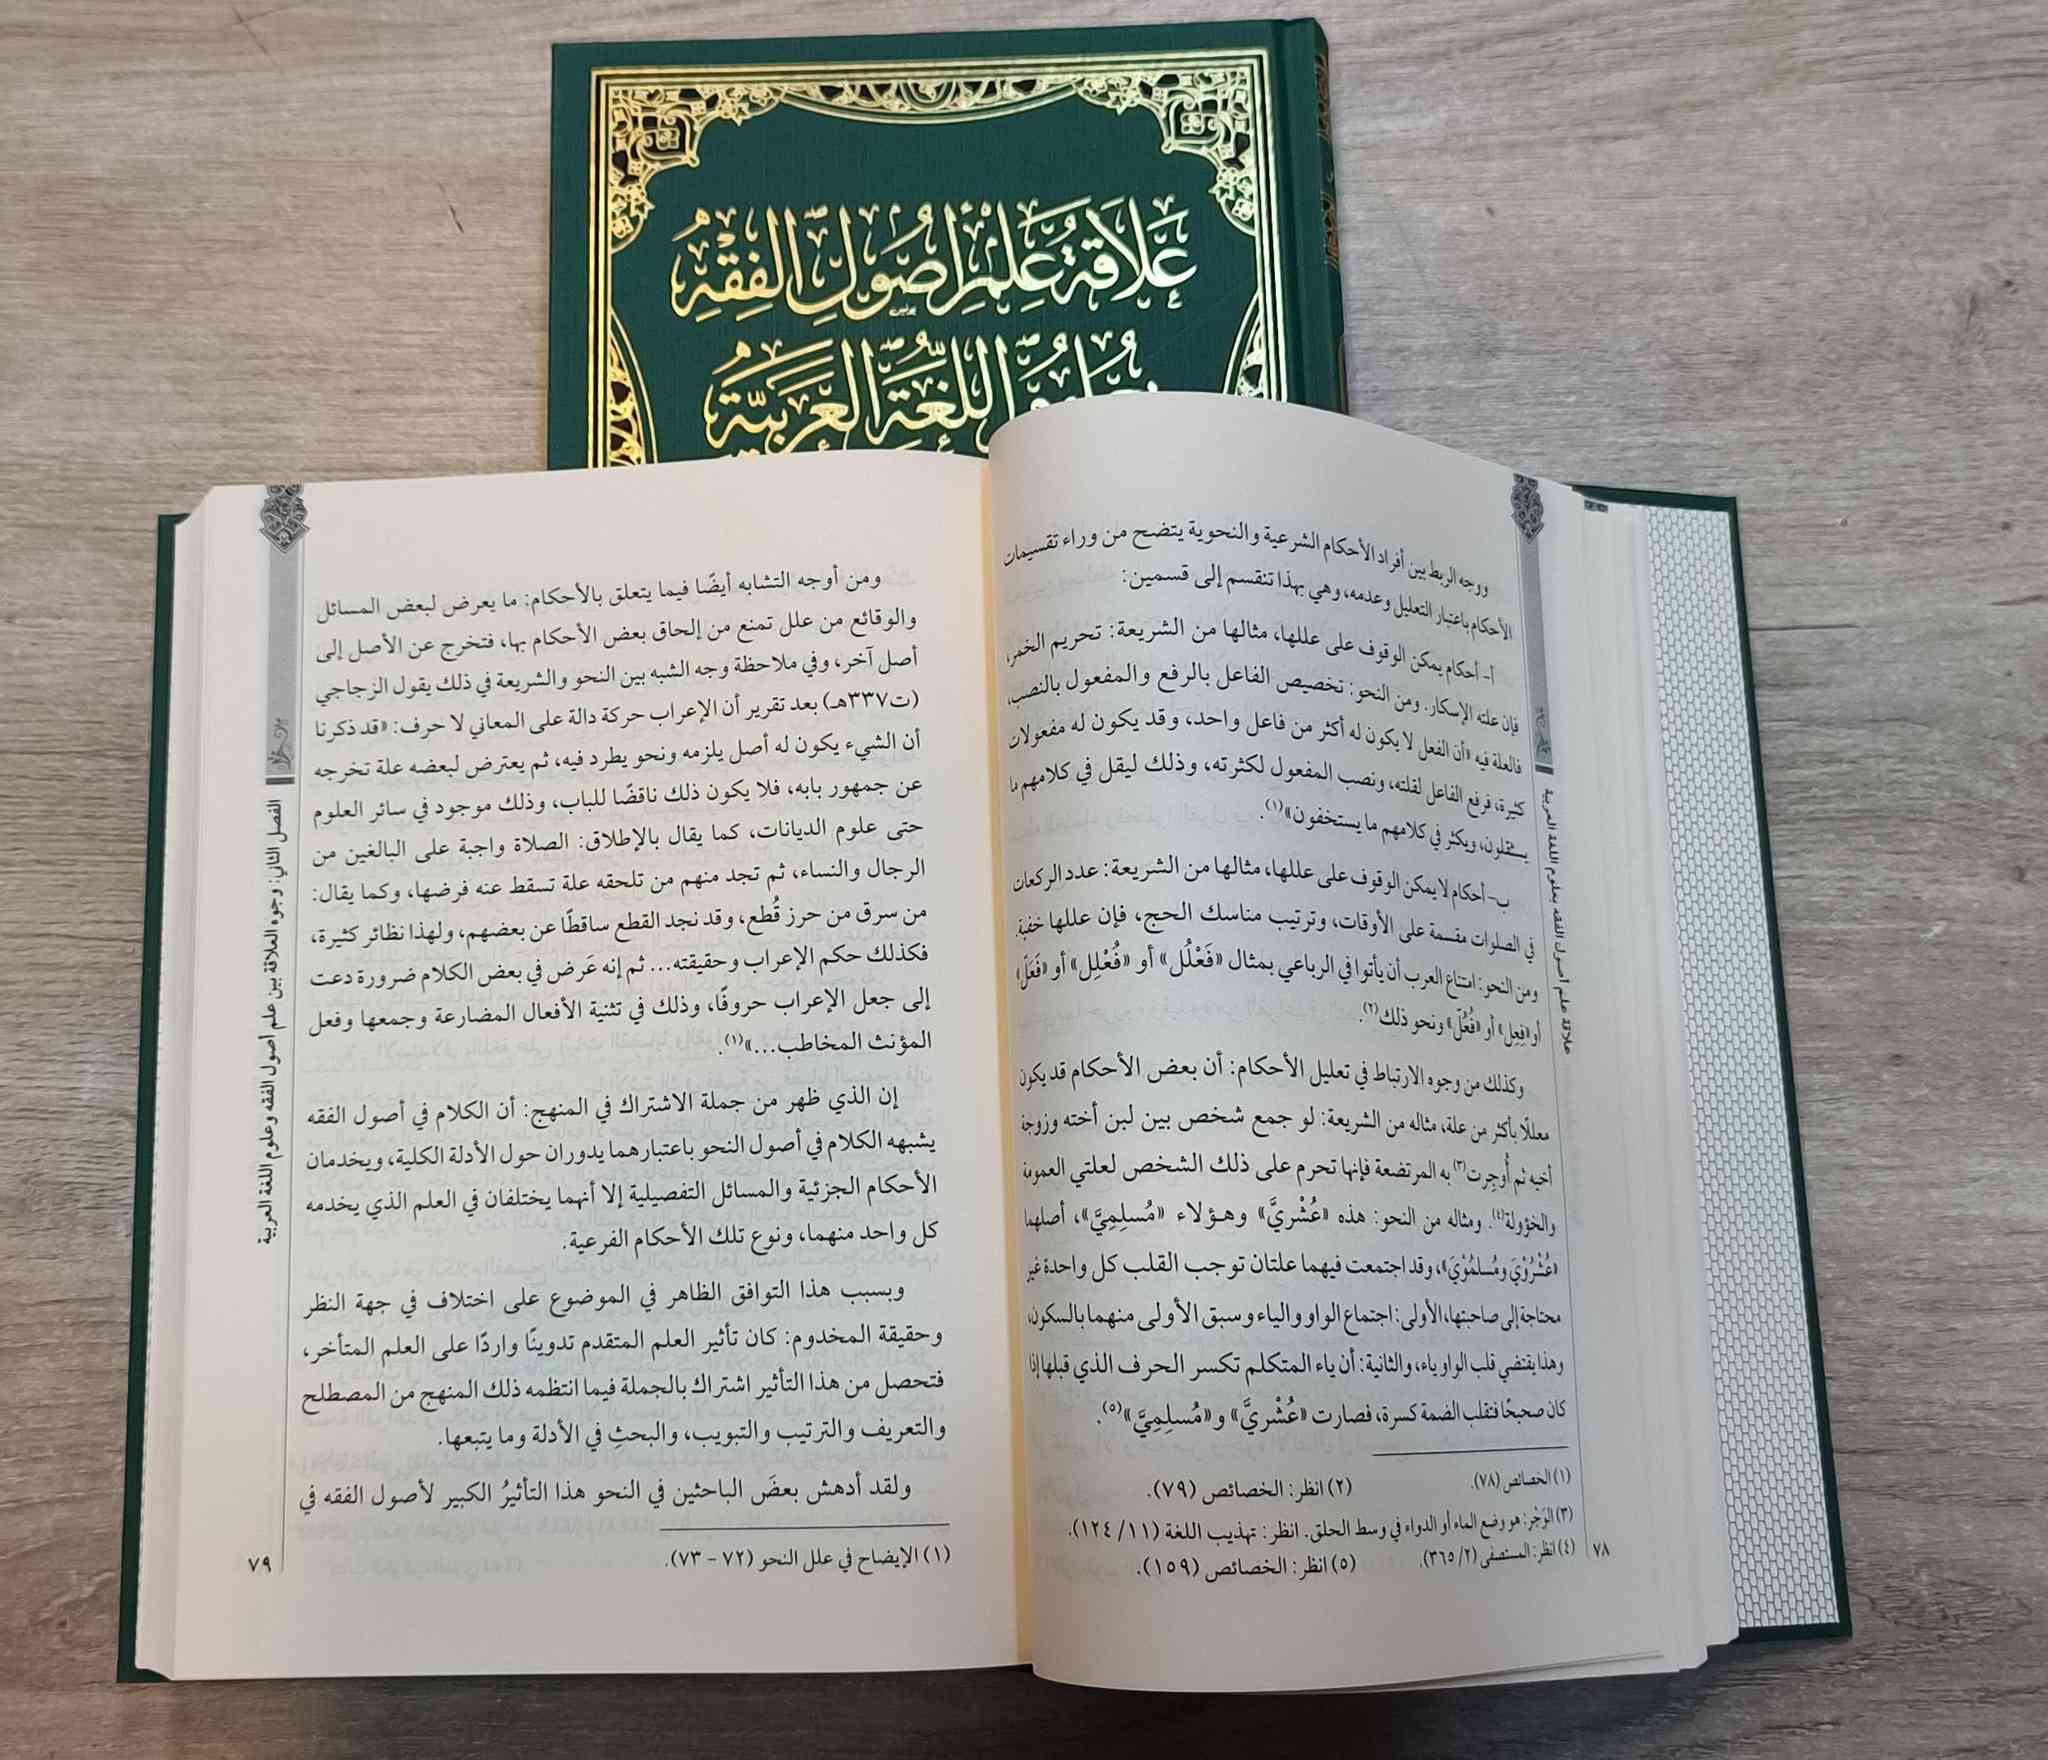 علاقة علم أصول الفقه
بعلوم اللغة العربية
ووجه الربط بين أفراد الأحكام الشرعية والنحوية يتضح من وراء تقسيمات
الأحكام باعتبار التعليل وعدمه، وهي بهذا تنقسم إلى قسمين:
أ- أحكام يمكن الوقوف على عللها، مثالها من الشريعة: تحريم الخمر،
فإن علته الإسكار. ومن النحو: تخصيص الفاعل بالرفع والمفعول بالنصب،
فالعلة فيه «أن الفعل لا يكون له أكثر من فاعل واحد، وقد يكون له مفعولات
كثيرة، فرفع الفاعل لقلته، ونصب المفعول لكثرته، وذلك ليقل في كلامهم ما
يستثقلون، ويكثر في كلامهم ما يستخفون»(١).
ب- أحكام لا يمكن الوقوف على عللها، مثالها من الشريعة: عدد الركعات
في الصلوات مقسمة على الأوقات، وترتيب مناسك الحج، فإن عللها خفية.
ومن النحو: امتناع العرب أن يأتوا في الرباعي بمثال «فَعْلُل» أو «فُعْلِل» أو «فَعَلّ»
أو «فِعِل» أو «فُعُلّ» ونحو ذلك(٢).
وكذلك من وجوه الارتباط في تعليل الأحكام: أن بعض الأحكام قد يكون
معللًا بأكثر من علة، مثاله من الشريعة: لو جمع شخص بين لبن أخته وزوجة
أخيه ثم أُوجِرت(٣) به المرتضعة فإنها تحرم على ذلك الشخص لعلتي العمومة
والخؤولة(٤). ومثاله من النحو: هذه «عُشْريَّ» وهؤلاء «مُسلِمِيَّ»، أصلهما
«عُشْرُوْيَ ومُسلمُوْيَ»، وقد اجتمعت فيهما علتان توجب القلب كل واحدة غير
محتاجة إلى صاحبتها، الأولى: اجتماع الواو والياء وسبق الأولى منهما بالسكون،
وهذا يقتضي قلب الواو ياء، والثانية: أن ياء المتكلم تكسر الحرف الذي قبلها إذا
كان صحيحًا فتقلب الضمة كسرة، فصارت «عُشْريَّ» و«مُسلِمِيَّ»(٥).
(١) الخصائص (٧٨). (٢) انظر: الخصائص (٧٩).
(٣) الوَجْر: هو وضع الماء أو الدواء في وسط الحلق. انظر: تهذيب اللغة (١١/ ١٢٤).
(٤) انظر: المستصفى (٢/ ٣٦٥). (٥) انظر: الخصائص (١٥٩).
٧٨
علاقة علم أصول الفقه بعلوم اللغة العربية
ومن أوجه التشابه أيضًا فيما يتعلق بالأحكام: ما يعرض لبعض المسائل
والوقائع من علل تمنع من إلحاق بعض الأحكام بها، فتخرج عن الأصل إلى
أصل آخر، وفي ملاحظة وجه الشبه بين النحو والشريعة في ذلك يقول الزجاجي
(ت٣٣٧هـ) بعد تقرير أن الإعراب حركة دالة على المعاني لا حرف: «قد ذكرنا
أن الشيء يكون له أصل يلزمه ونحو يطرد فيه، ثم يعترض لبعضه علة تخرجه
عن جمهور بابه، فلا يكون ذلك ناقضًا للباب، وذلك موجود في سائر العلوم
حتى علوم الديانات، كما يقال بالإطلاق: الصلاة واجبة على البالغين من
الرجال والنساء، ثم تجد منهم من تلحقه علة تسقط عنه فرضها، وكما يقال:
من سرق من حرز قُطع، وقد نجد القطع ساقطًا عن بعضهم، ولهذا نظائر كثيرة،
فكذلك حكم الإعراب وحقيقته... ثم إنه عَرض في بعض الكلام ضرورة دعت
إلى جعل الإعراب حروفًا، وذلك في تثنية الأفعال المضارعة وجمعها وفعل
المؤنث المخاطب...»(١).
إن الذي ظهر من جملة الاشتراك في المنهج: أن الكلام في أصول الفقه
يشبهه الكلام في أصول النحو باعتبارهما يدوران حول الأدلة الكلية، ويخدمان
الأحكام الجزئية والمسائل التفصيلية إلا أنهما يختلفان في العلم الذي يخدمه
كل واحد منهما، ونوع تلك الأحكام الفرعية.
وبسبب هذا التوافق الظاهر في الموضوع على اختلاف في جهة النظر
وحقيقة المخدوم: كان تأثير العلم المتقدم تدوينًا واردًا على العلم المتأخر،
فتحصل من هذا التأثير اشتراك بالجملة فيما انتظمه ذلك المنهج من المصطلح
والتعريف والترتيب والتبويب، والبحثِ في الأدلة وما يتبعها.
ولقد أدهش بعضَ الباحثين في النحو هذا التأثيرُ الكبير لأصول الفقه في
(١) الإيضاح في علل النحو (٧٢ - ٧٣).
٧٩
الفصل الثاني: وجوه العلاقة بين علم أصول الفقه وعلوم اللغة العربية